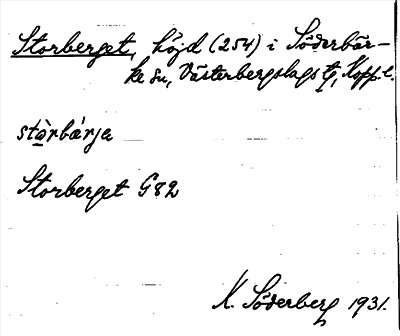 Storberget, höjd (254) i Söderbär-
ke sn, Västerbergslags tg, Kopp. l.
stòrbárja
Storberget G82
K. Söderberg 1931.